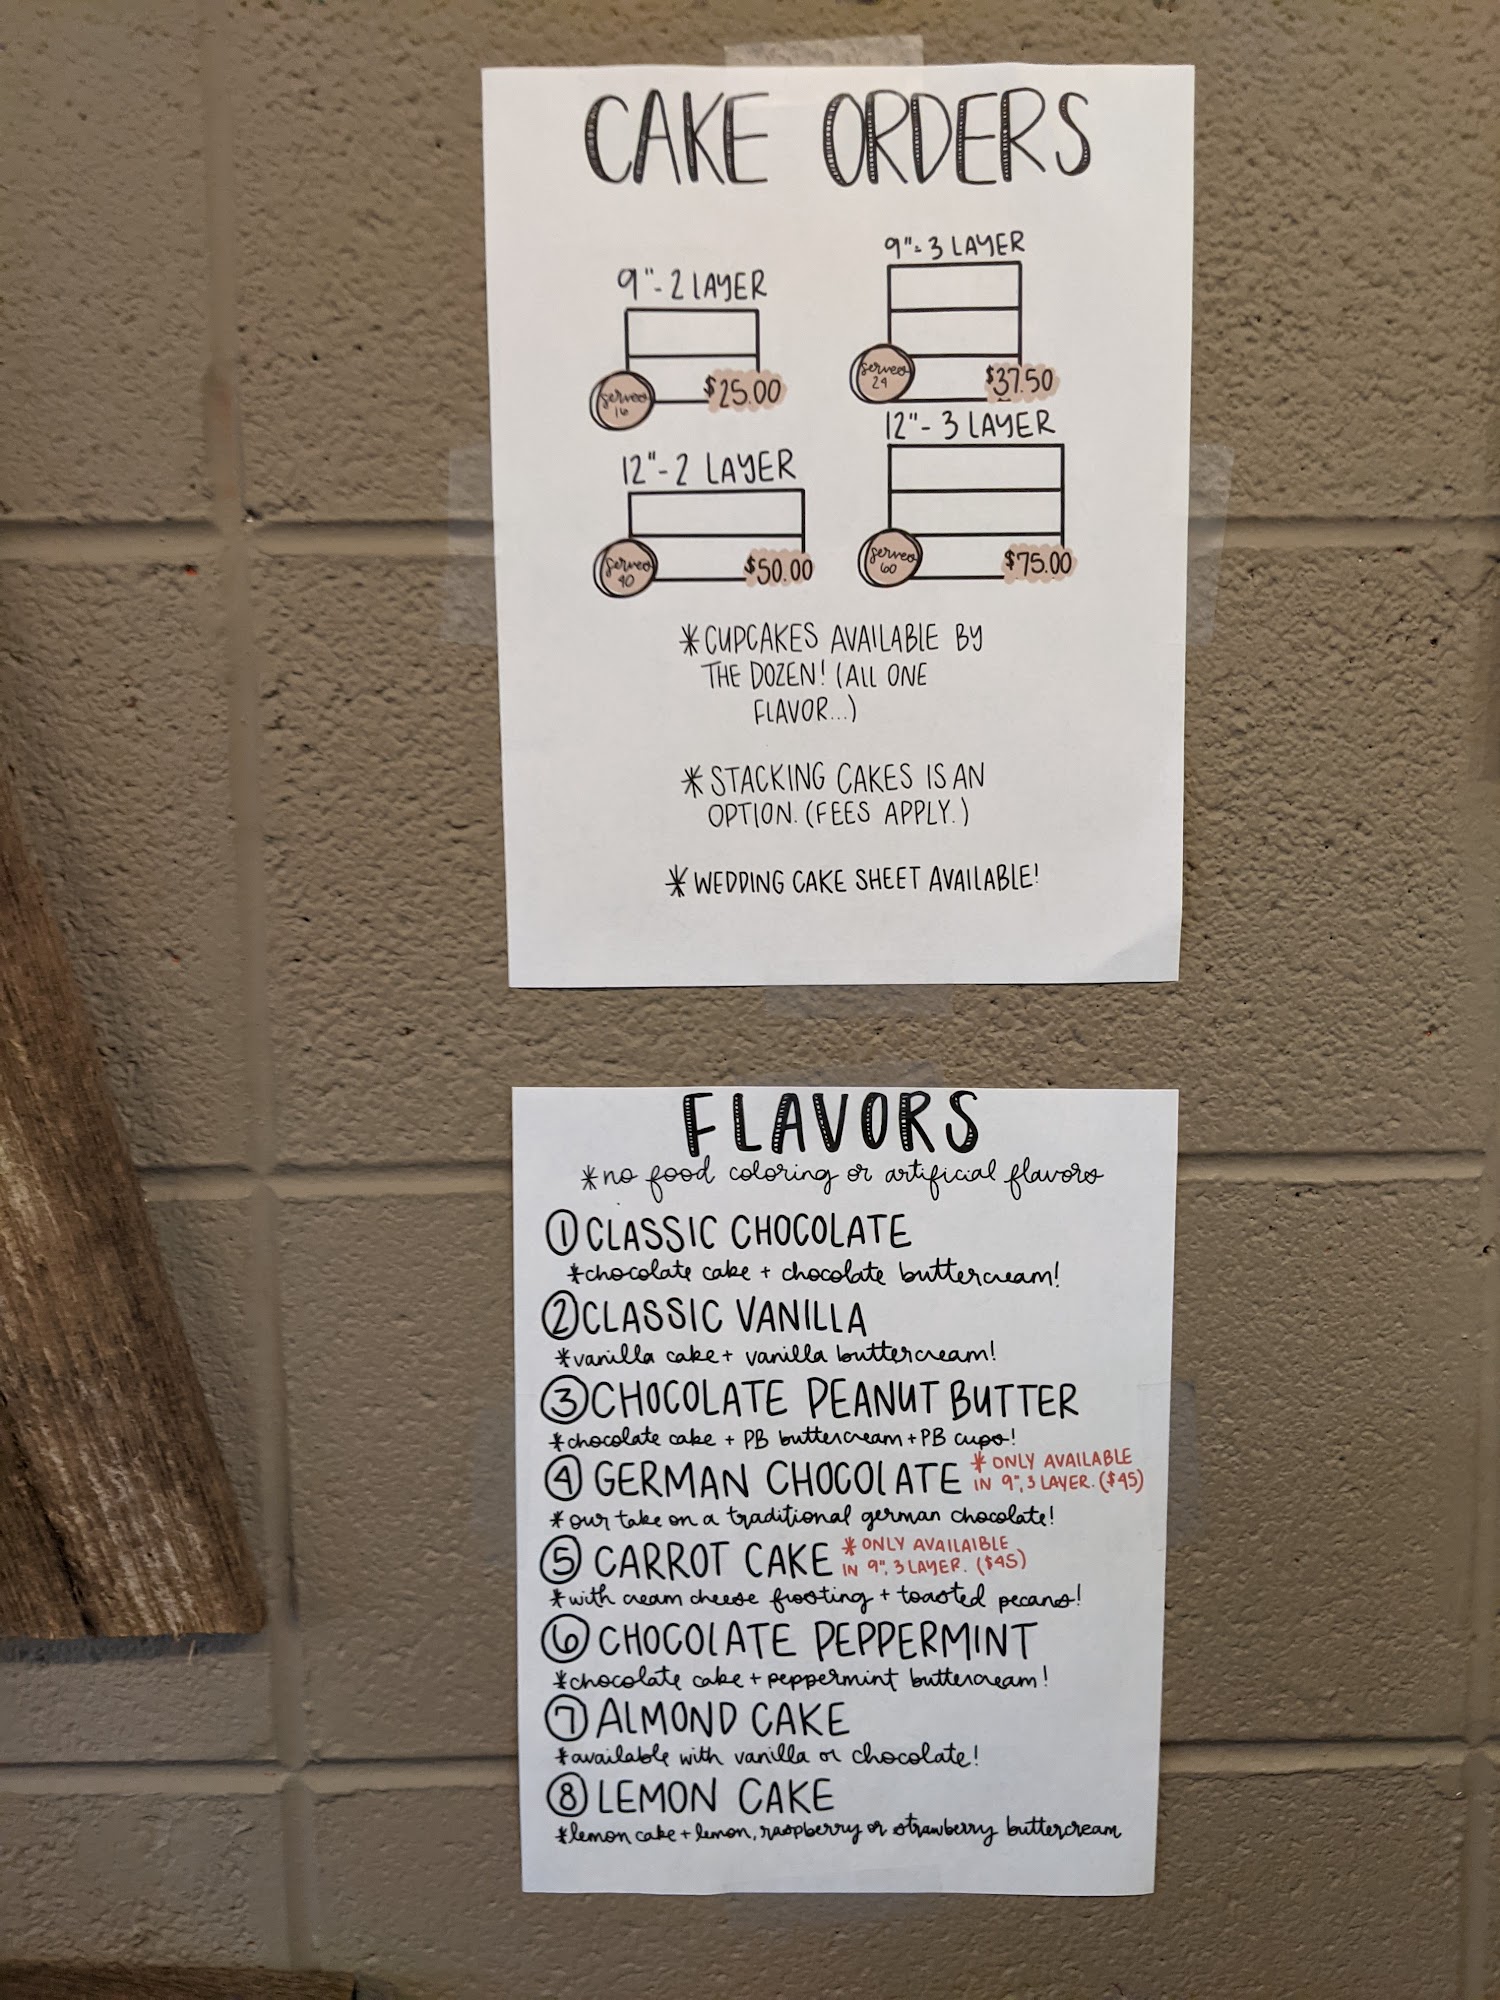 CAKE ORDERS
9"- 2 LAYER
serves
16
$25.00
9"- 3 LAYER
serves
24
$37.50
12"- 2 LAYER
serves
40
$50.00
12"- 3 LAYER
serves
60
$75.00
*CUPCAKES AVAILABLE BY
THE DOZEN! (ALL ONE
FLAVOR...)
*STACKING CAKES IS AN
OPTION. (FEES APPLY.)
*WEDDING CAKE SHEET AVAILABLE!
FLAVORS
*no food coloring or artificial flavors
① CLASSIC CHOCOLATE
*chocolate cake + chocolate buttercream!
② CLASSIC VANILLA
*vanilla cake + vanilla buttercream!
③ CHOCOLATE PEANUT BUTTER
*chocolate cake + PB buttercream + PB cups!
④ GERMAN CHOCOLATE
*ONLY AVAILABLE
IN 9", 3 LAYER. ($45)
*our take on a traditional german chocolate!
⑤ CARROT CAKE
*ONLY AVAILAIBLE
IN 9", 3 LAYER. ($45)
*with cream cheese frosting + toasted pecans!
⑥ CHOCOLATE PEPPERMINT
*chocolate cake + peppermint buttercream!
⑦ ALMOND CAKE
*available with vanilla or chocolate!
⑧ LEMON CAKE
*lemon cake + lemon, raspberry or strawberry buttercream